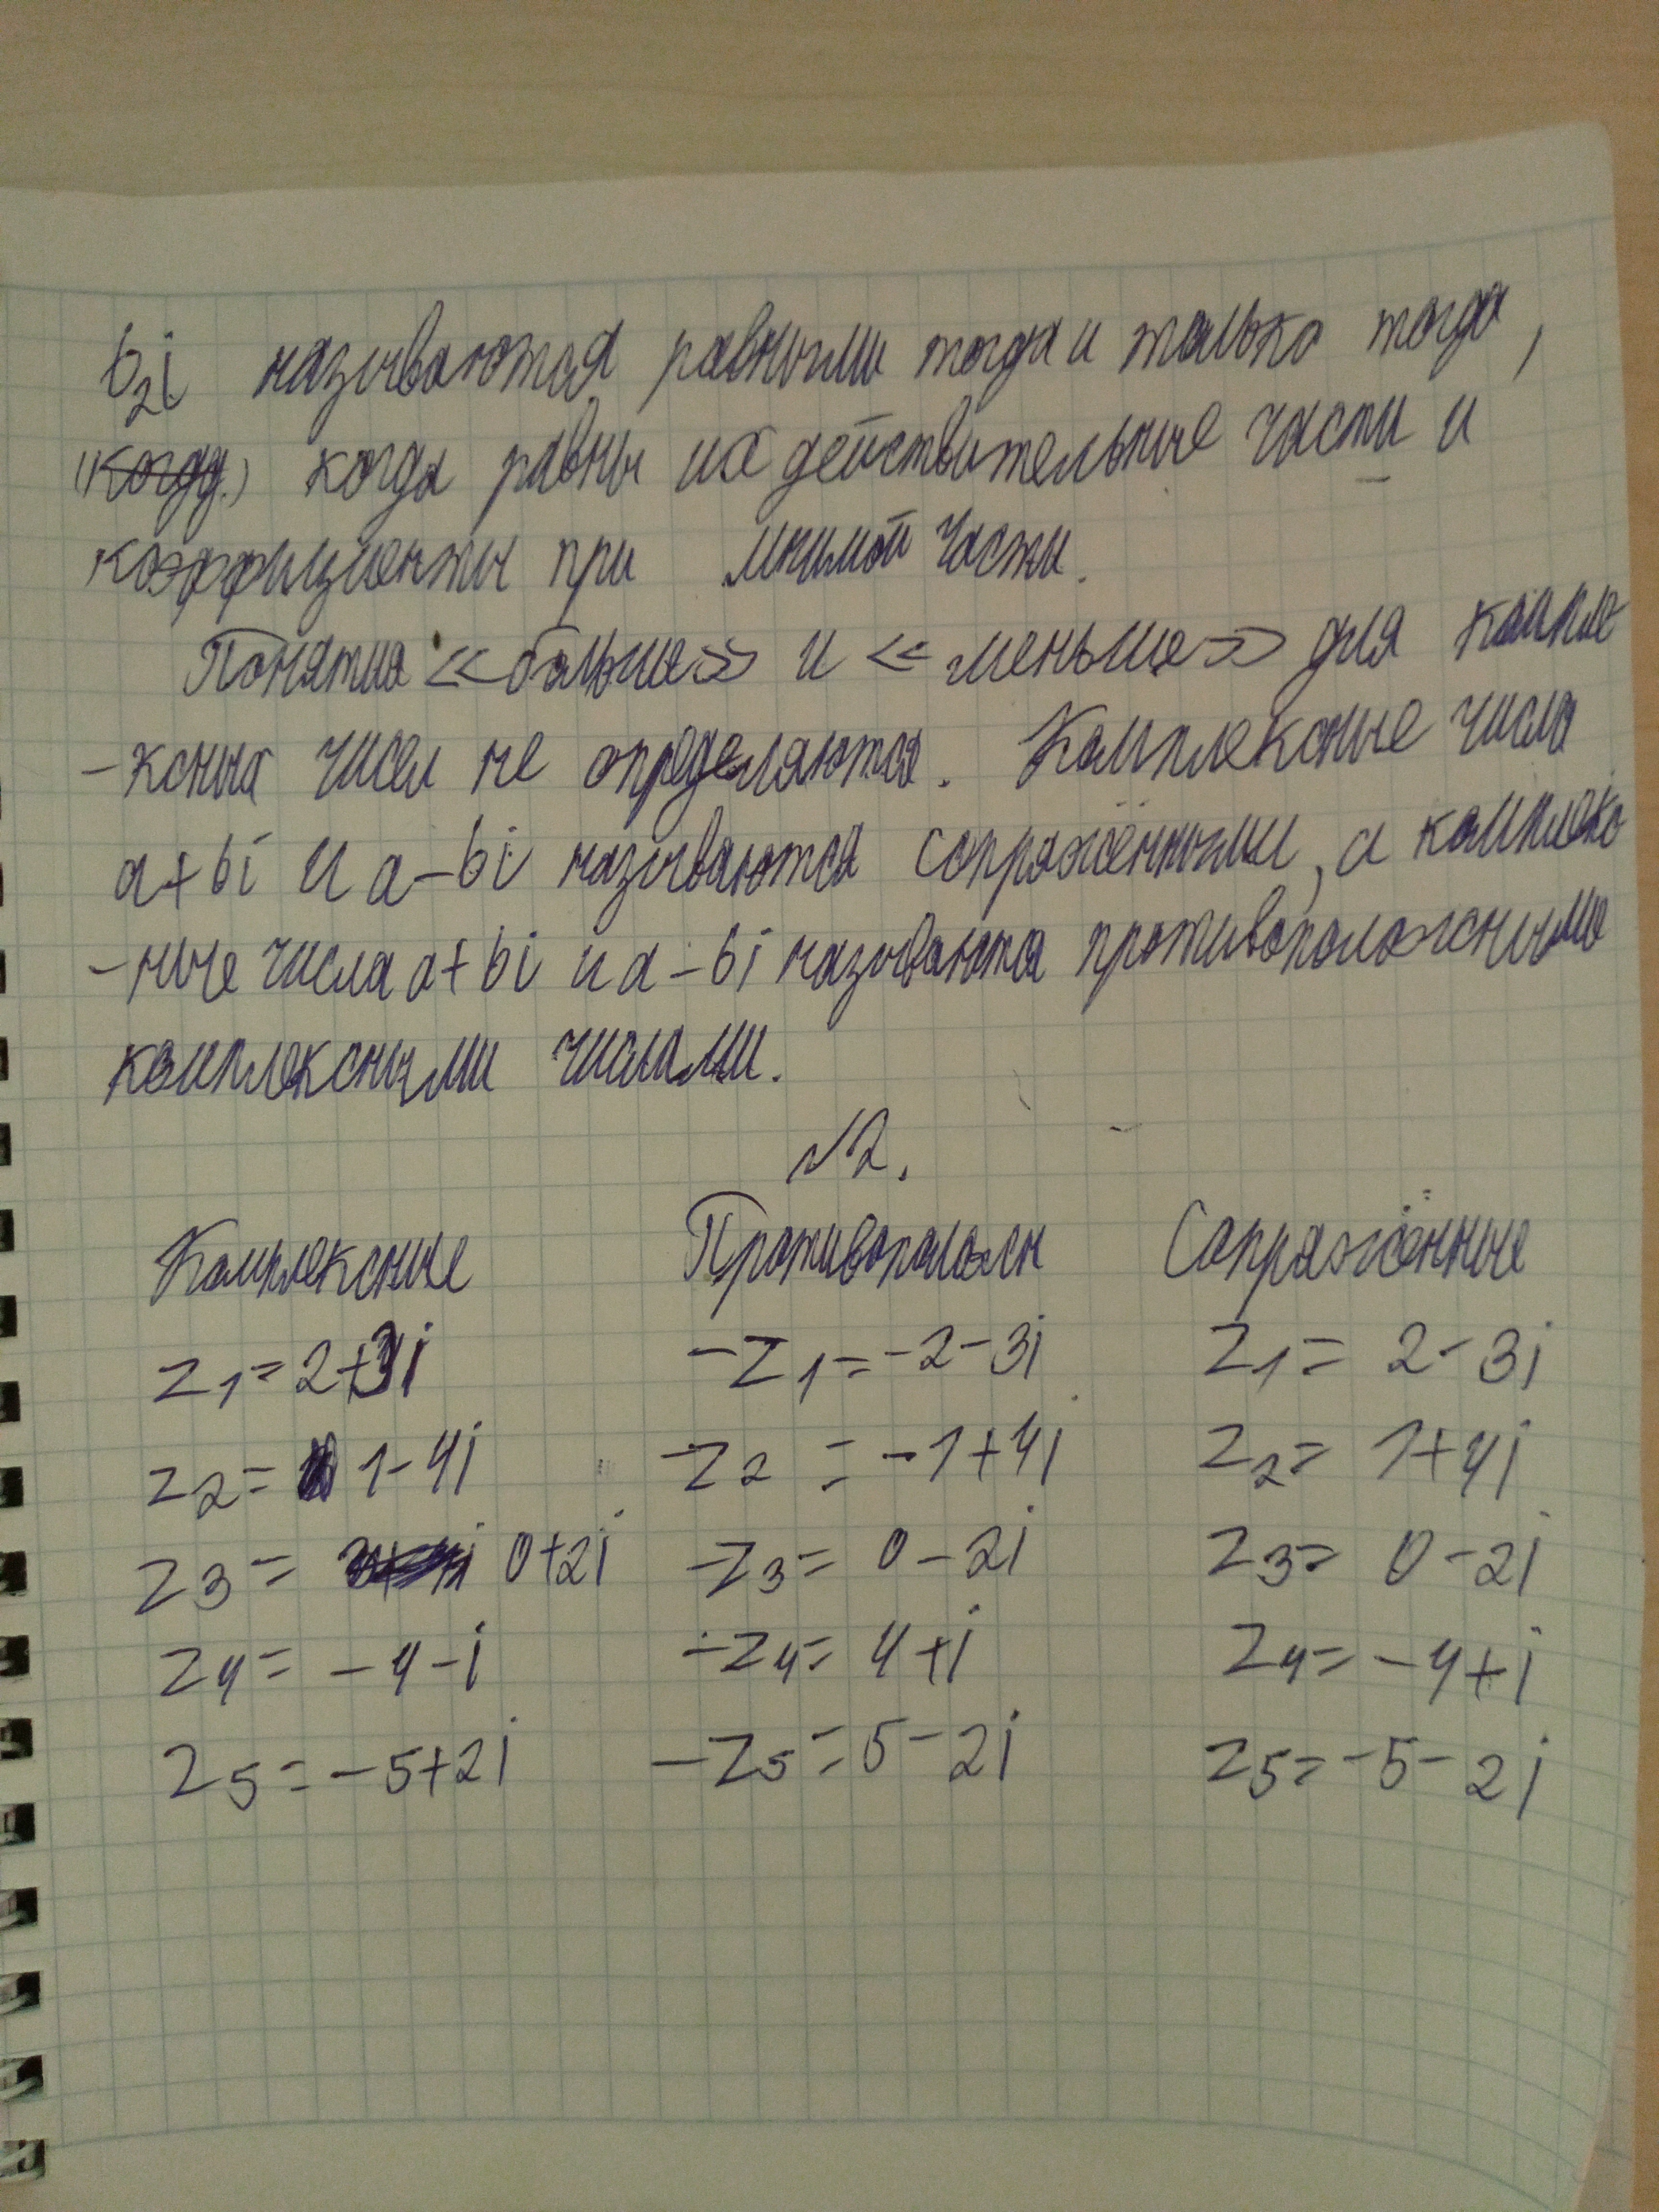 b₂i называются равными тогда и только тогда,
(когда) когда равны их действительные части и
коэффициенты при мнимой части.
Понятия «больше» и «меньше» для компле
-ксных чисел не определяются. Комплексные числа
a+bi и a-bi называются сопряжёнными, а комплекс
-ные числа a+bi и a-bi называются противоположными
комплексными числами.
№2.
Комплексные Противоположн Сопряжённые
z₁=2+3i -z₁=-2-3i z₁=2-3i
z₂=1-4i -z₂=-1+4i z₂=1+4i
z₃=0+2i -z₃=0-2i z₃=0-2i
z₄=-4-i -z₄=4+i z₄=-4+i
z₅=-5+2i -z₅=5-2i z₅=-5-2i